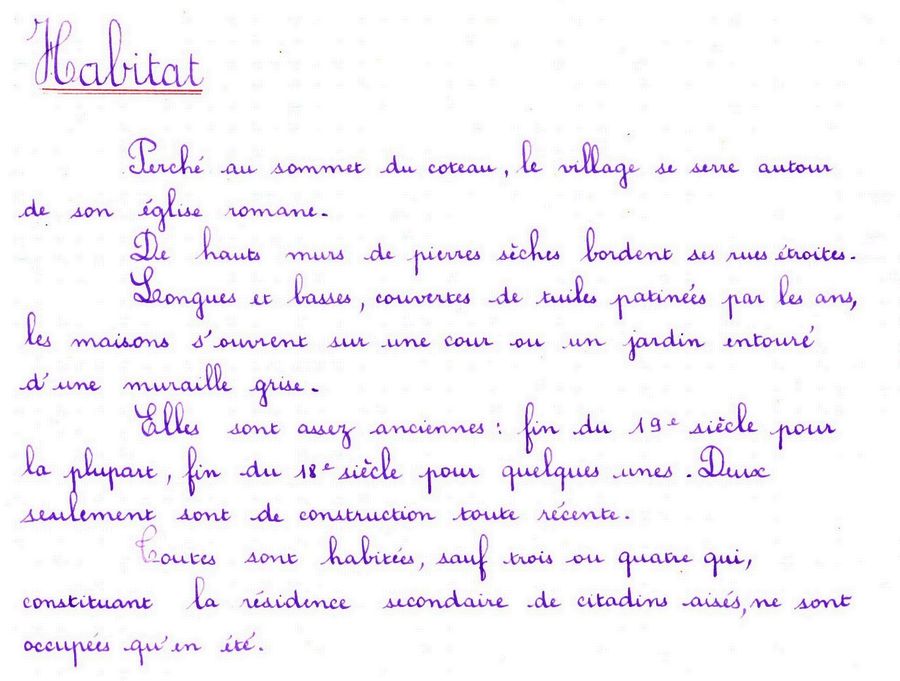 Habitat
Perché au sommet du coteau, le village se serre autour
de son église romane.
De hauts murs de pierres sèches bordent ses rues étroites.
Longues et basses, couvertes de tuiles patinées par les ans,
les maisons s'ouvrent sur une cour ou un jardin entouré
d'une muraille grise.
Elles sont assez anciennes : fin du 19e siècle pour
la plupart, fin du 18e siècle pour quelques unes. Deux
seulement sont de construction toute récente.
Toutes sont habitées, sauf trois ou quatre qui,
constituant la résidence secondaire de citadins aisés, ne sont
occupées qu'en été.